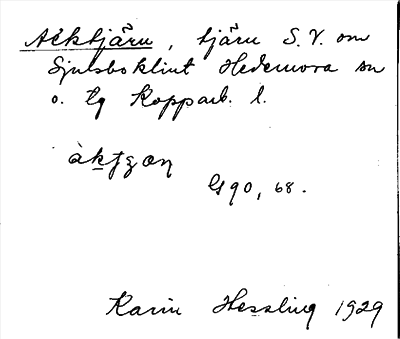 Acktjärn, tjärn S.V. om
Sjulsboklint Hedemora sn
o. tg Kopparb. l.
àktʒæn
G 90, 68.
Karin Hessling 1929